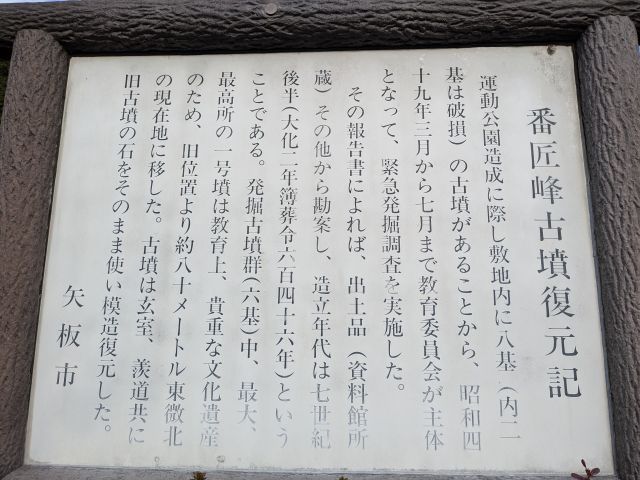 番匠峰古墳復元記
運動公園造成に際し敷地内に八基（内二
基は破損）の古墳があることから、昭和四
十九年三月から七月まで教育委員会が主体
となって、緊急発掘調査を実施した。
その報告書によれば、出土品（資料館所
蔵）その他から勘案し、造立年代は七世紀
後半（大化二年簿葬令六百四十六年）という
ことである。発掘古墳群（六基）中、最大、
最高所の一号墳は教育上、貴重な文化遺産
のため、旧位置より約八十メートル東微北
の現在地に移した。古墳は玄室、羨道共に
旧古墳の石をそのまま使い模造復元した。
矢板市